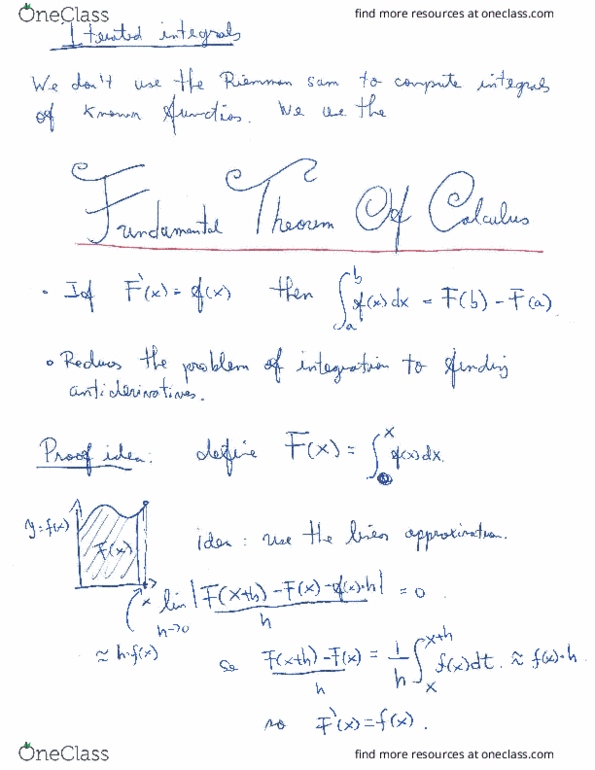 OneClass
find more resources at oneclass.com
Iterated integrals
We don't use the Riemman sum to compute integrals
of known function. We use the
Fundamental Theorem Of Calculus
• If F'(x) = f(x) then ∫_a^b f(x) dx = F(b) - F(a)
• Reduces the problem of integration to finding
antiderivatives.
Proof idea: define F(x) = ∫^x f(x) dx.
y = f(x)
F(x)
idea: use the linear approximation.
x
lim_{h→0} |F(x+h) - F(x) - f(x)·h| / h = 0
≈ h·f(x)
so (F(x+h) - F(x)) / h = 1/h ∫_x^{x+h} f(x) dt. ≈ f(x)·h
so F'(x) = f(x).
OneClass
find more resources at oneclass.com